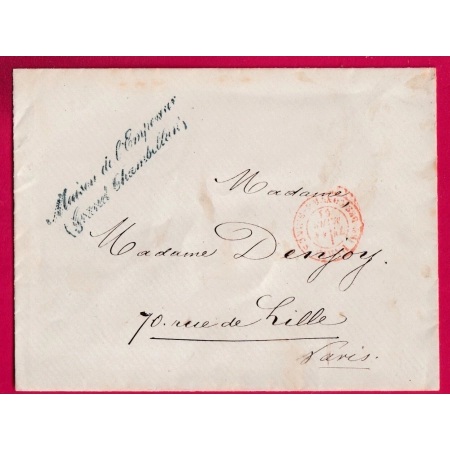 Maison de l'Empereur
(Grand Chambellan)
Madame
Madame Denjoy.
70. rue de Lille
Paris.